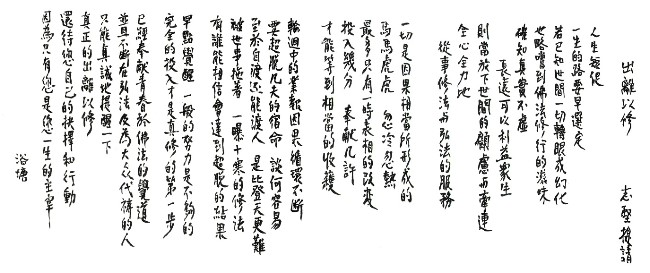 出離以修
志堅後請
人生短促
一生的路要早選定
若已知世間一切轉眼成幻化
也略嚐到佛法修行的滋味
確知真實不虛
長遠可以利益眾生
則當放下世間的顧慮而當連
全心全力地
從事修法而弘法的服務
一切是因果相當所形成的
馬馬虎虎 忽冷忽熱
最多只有一時表相的改變
投入幾分 奉獻幾許
才能等到相當的收穫
輪迴中的業報因果循環不斷
要超脫凡夫的宿命 談何容易
至於自渡還能渡人 是比登天更難
被世事拖着 一曝十寒的修法
有誰能相信會達到超脫的結果
早點覺醒 一般的努力是不夠的
完全的投入才是真修的第一步
已經奉獻青春於佛法的
並且不斷在弘法及為大眾代禱的人
只能真誠地提醒一下
真正的出離以修
還待您自己的抉擇和行動
因為只有您是您一生的主宰
浴塘